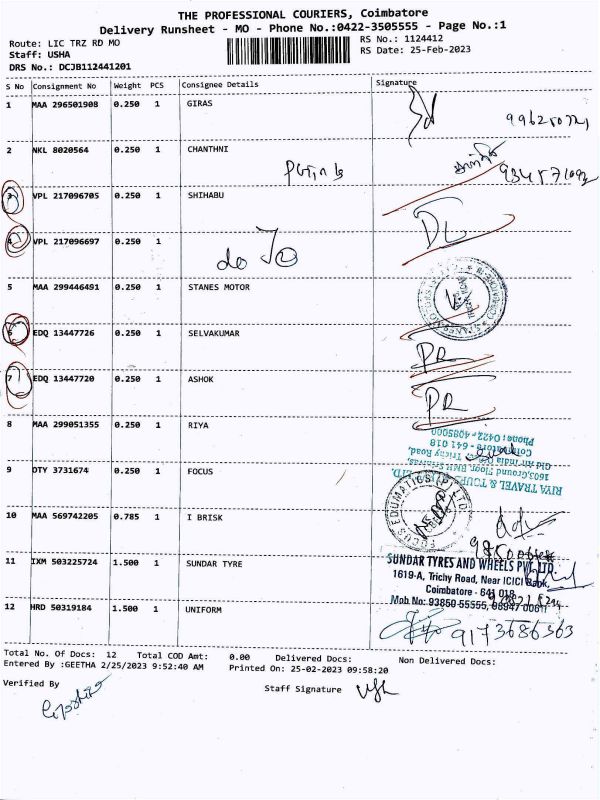 THE PROFESSIONAL COURIERS, Coimbatore
Delivery Runsheet - MO - Phone No.:0422-3505555 - Page No.:1
Route: LIC TRZ RD MO
RS No.: 1124412
Staff: USHA
RS Date: 25-Feb-2023
DRS No.: DCJB112441201
S No Consignment No Weight PCS Consignee Details Signature
1 MAA 296501908 0.250 1 GIRAS
2 NKL 8020564 0.250 1 CHANTHNI
3 VPL 217096705 0.250 1 SHIHABU
DL
4 VPL 217096697 0.250 1
5 MAA 299446491 0.250 1 STANES MOTOR
6 EDQ 13447726 0.250 1 SELVAKUMAR
PR
7 EDQ 13447720 0.250 1 ASHOK
PR
8 MAA 299051355 0.250 1 RIYA
RIYA TRAVEL & TOURS
1603,Ground Floor, BMH Srinivas,
Old Air India Office, Trichy Road,
Coimbatore - 641 018
Phone: 0422 - 4085000
9 DTY 3731674 0.250 1 FOCUS
FOCUS EDUMATICS (P) LTD.
10 MAA 569742205 0.785 1 I BRISK
11 IXM 503225724 1.500 1 SUNDAR TYRE
SUNDAR TYRES AND WHEELS PVT. LTD.
1619-A, Trichy Road, Near ICICI Bank,
Coimbatore - 641 018
Mob No: 93850 55555,
12 HRD 50319184 1.500 1 UNIFORM
9173686363
Total No. Of Docs: 12 Total COD Amt: 0.00 Delivered Docs: Non Delivered Docs:
Entered By :GEETHA 2/25/2023 9:52:40 AM Printed On: 25-02-2023 09:58:20
Verified By
Staff Signature